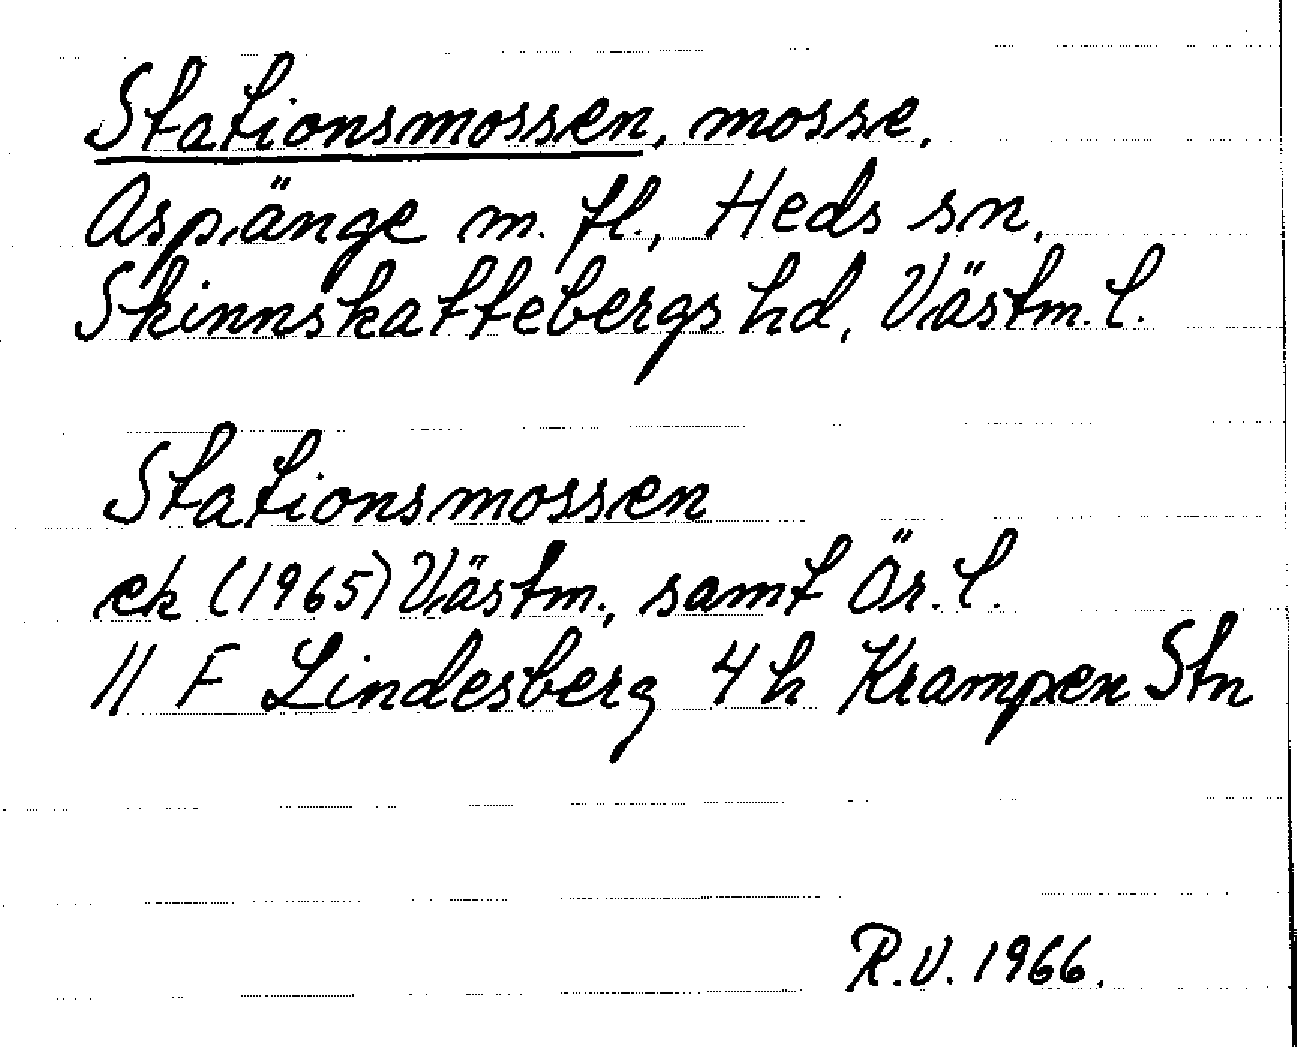 Stationsmossen, mosse,
Aspänge m. fl., Heds sn,
Skinnskattebergs hd, Västm. l.
Stationsmossen
ek (1965) Västm., samt Ör. l.
11 F Lindesberg 4 h Krampen Stn
R.V. 1966.